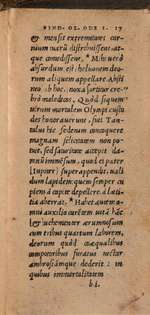 PIND. OL. ODE I. 17
ey mensis extremitates car-
nium quas distribuissent at-
que comedissent. * Mihi verò
absurdum est: heluonem deo-
rum aliquem appellare. Absti
neo ab hoc. noxa sortitur cre-
brò maledicos. Quòd si quem
virum mortalem Olympi custo
des honorauerunt, fuit Tan-
talus hic. sed enim concoquere
magnam felicitatem non po-
tuit, sed saturitate accepit da-
mnũ immẽsum, quod ei pater
Iuppiter super appendit, vali
dum lapidem: quem semper cu
piens à capite depellere. à lati-
tia aberrat. * Habet autem
auxilio carẽtem vitã hãc
ley luchementer ærumnosam
cum tribus quartum laborem,
deorum quòd æqualibus
compotoribus furatus nectar
ambrosiamque dederit: in
quibus immortalitatem
b i.